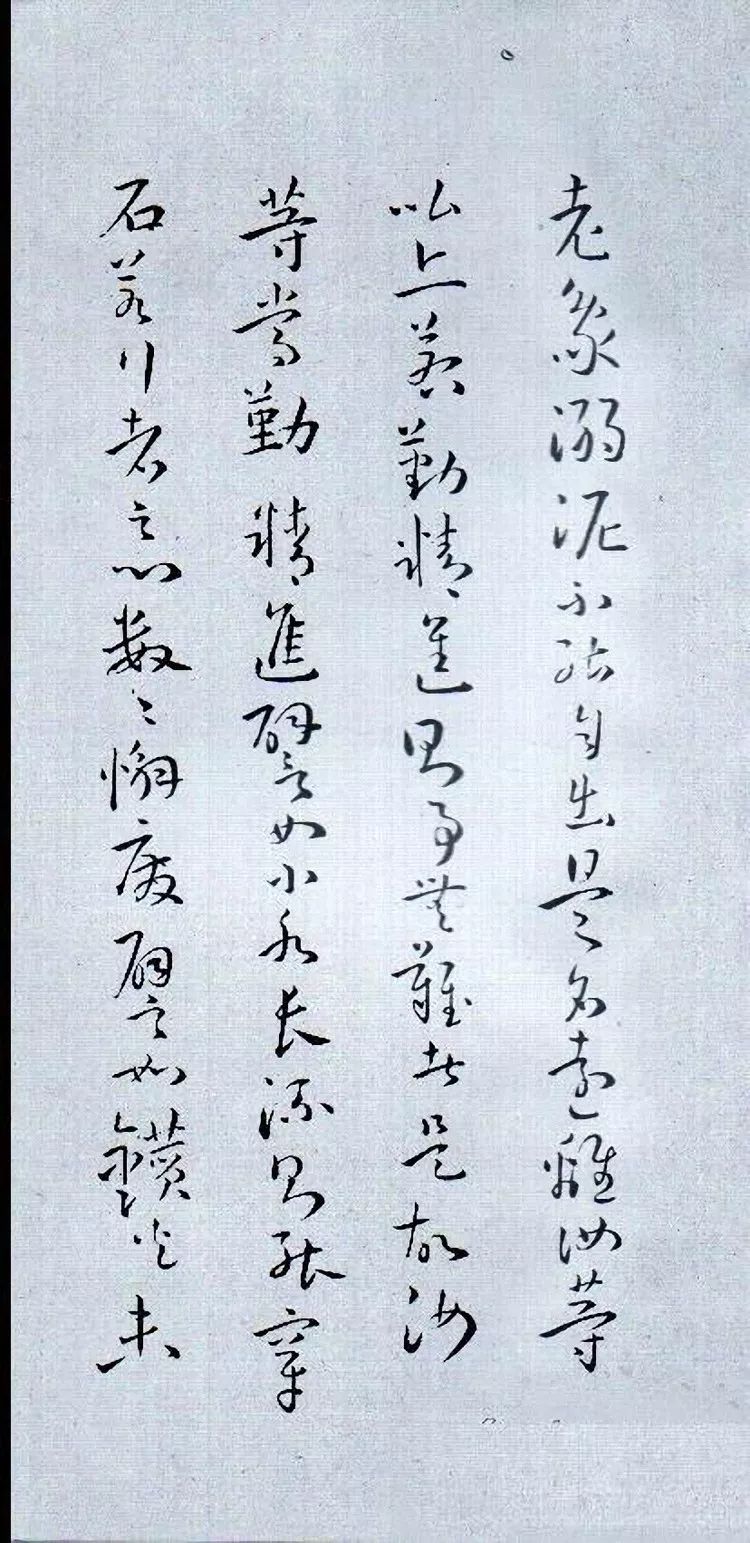 老象溺泥不能自出是名遠離汝等
比丘若勤精進則事無難者是故汝
等當勤精進譬如小水長流則能穿
石若行者之心數〻懈廢譬如鑽火未